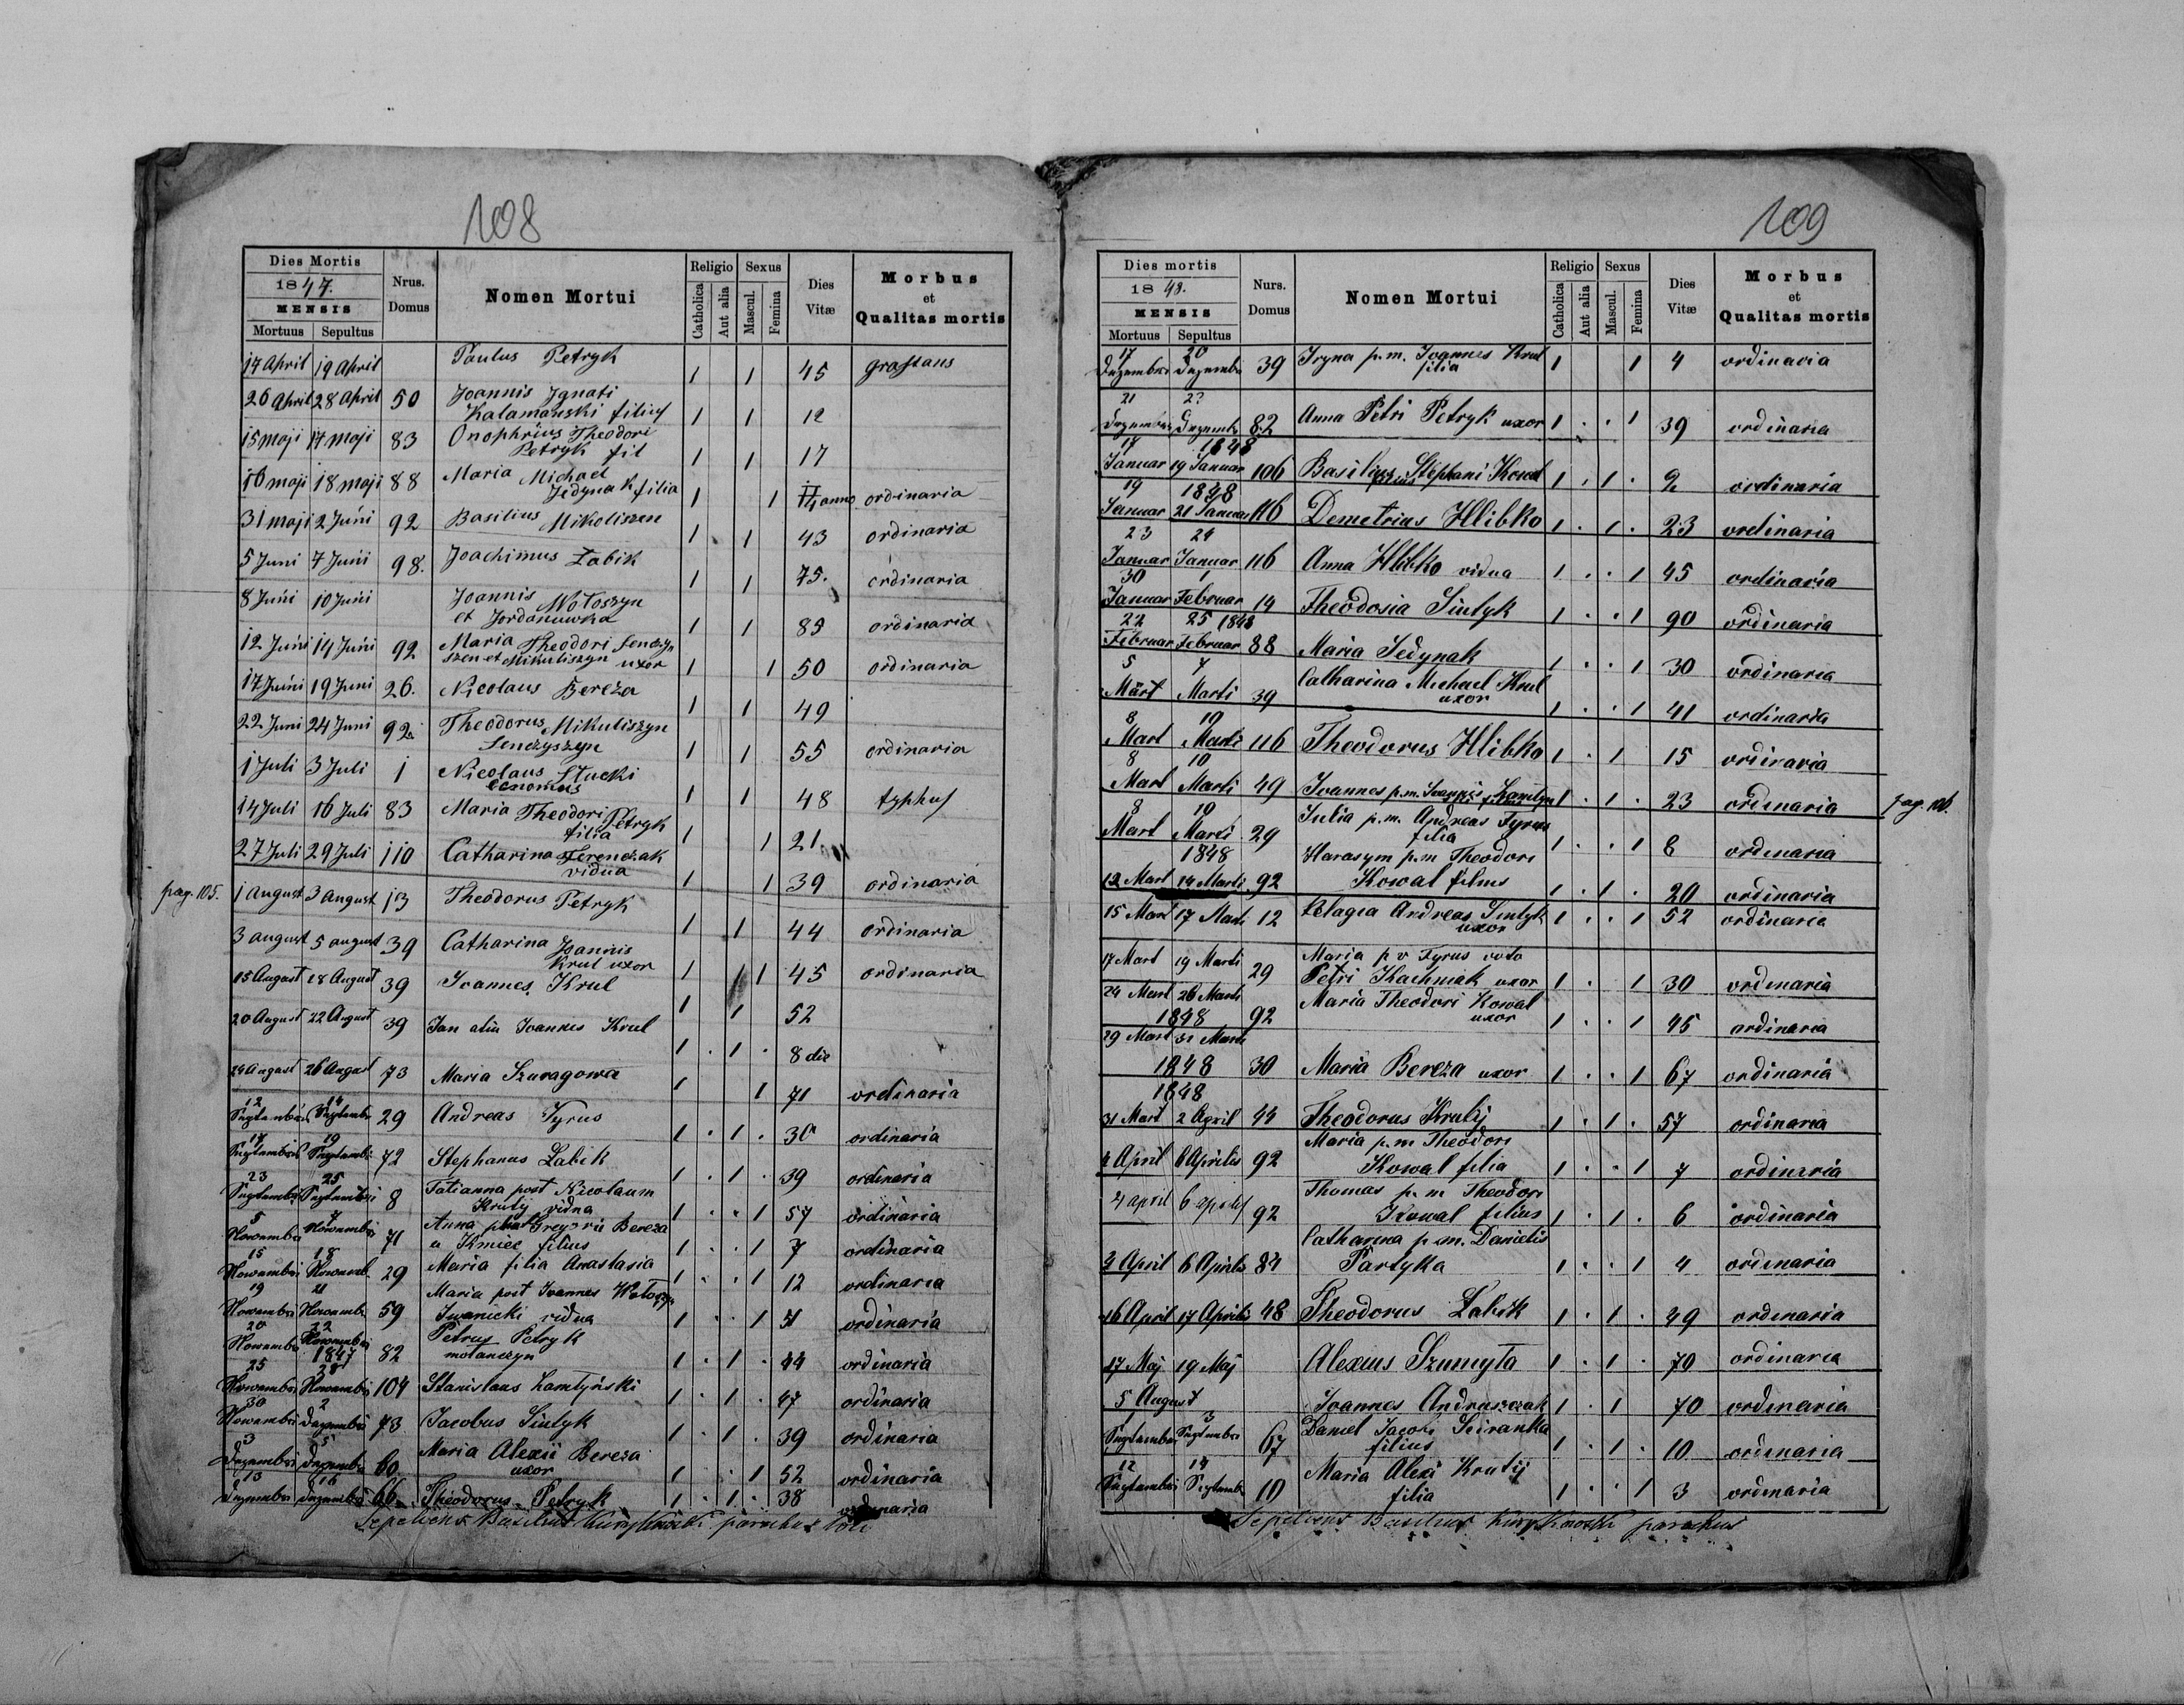 108
Dies Mortis
1847.
MENSIS
Mortuus Sepultus
Nrus. Domus
Nomen Mortui
Religio
Catholica
Aut alia
Sexus
Mascul.
Femina
Dies Vitæ
Morbus et Qualitas mortis
17 April 19 April Paulus Petryk 1 1 45
26 April 28 April 50 Joannis Ignati
Kalamanski filius 1 1 12
15 maji 17 maji 83 Onophrius Theodori
Petryk fil 1 1 17
16 maji 18 maji 88 Maria Michael
Jedynak filia 1 1 anno ordinaria
31 maji 2 Juni 92 Basilius Mikoliszen 1 1 43 ordinaria
5 Juni 7 Juni 98. Joachimus Łabik 1 1 75. ordinaria
8 Juni 10 Juni Joannis Wołoszyn
et Jordanuwka 1 1 85 ordinaria
12 Juni 14 Juni 92 Maria Theodori
et Mikuliszyn uxor 1 1 50 ordinaria
17 Juni 19 Juni 26. Nicolaus Bereza 1 1 49
22 Juni 24 Juni 92 Theodorus Mikuliszyn
Senczyszyn 1 1 55 ordinaria
1 Juli 3 Juli 1 Nicolaus Stucki
Económus 1 1 48 typhus
14 Juli 16 Juli 83 Maria Theodori Petryk
filia 1 1 21.
27 Juli 29 Juli 110 Catharina Ferenczak
vidua 1 1 39 ordinaria
pag. 105. 1 August 3 August 13 Theodorus Petryk 1 1 44 ordinaria
3 august 5 august 39 Catharina Joannis
Krul uxor 1 1 45 ordinaria
15 August 18 August 39 Joannes Krul 1 1 52
20 August 22 August 39 Jan Joannes Krul 1 . 1 . 8 die
24 August 26 August 73 Maria Szuragowa 1 1 71 ordinaria
12 14
29 Andreas Tyrus 1 . 1 . 30 ordinaria
17 19
72 Stephanus Łabik 1 . 1 . 39 ordinaria
23 25
8 Tatianna post Nicolaum
Kruty vidua 1 . . 1 57 ordinaria
5 7
71 Anna Gregorii Bereza
u Kmiec filius 1 . . 1 7 ordinaria
15 18
29 Maria filia Anastasia 1 . . 1 12 ordinaria
19 21
59 Maria post Joannes
Iwanicki vidua 1 . . 1 51 ordinaria
20 22
82 Petrus Petryk
motanczyn 1 . 1 . 44 ordinaria
1847
25 28
104 Stanislaus Lamtyński 1 . 1 . 47 ordinaria
30 2
73 Jacobus Sintyk 1 . 1 . 39 ordinaria
3 5
60 Maria Alexii Bereza
uxor 1 . 1 52 ordinaria
13 16
66 Theodorus Petryk 1 . 1 . 38 ordinaria
Sepeliens Basilius parochus loci
109
Dies mortis
1848.
MENSIS
Mortuus Sepultus
Nurs. Domus
Nomen Mortui
Religio
Catholica
Aut alia
Sexus
Mascul.
Femina
Dies Vitæ
Morbus et Qualitas mortis
17 20
39 Iryna p.m. Joannes Krul
filia 1 1 4 ordinaria
21
82 Anna Petri Petryk uxor 1 . . 1 39 ordinaria
17 1848
Januar 19 Januar 106 Basilius Stephani Kowal 1 . 1 . 2 ordinaria
19 1848
Januar 21 Januar 116 Demetrius Hlibko 1 . 1 . 23 ordinaria
23 24
Januar Januar 116 Anna Hlibko vidua 1 . . 1 45 ordinaria
30 1
Januar Februar 14 Theodosia Sintyk 1 . . 1 90 ordinaria
22 25 1848
Februar Februar 88 Maria Jedynak 1 . . 1 30 ordinaria
5 7
Mart Marti 39 Catharina Michael Krul
uxor 1 . . 1 41 ordinaria
8 10
Mart Marti 116 Theodorus Hlibko 1 . 1 15 ordinaria
8 10
Mart Marti 49 Joannes p.m. 1 . 1 . 23 ordinaria pag. 106.
8 10
Mart Marti 29 Julia p.m. Andreas Tyrus
filia 1 . . 1 8 ordinaria
1848
12 Mart 14 Marti 92 Harasym p.m Theodori
Kowal filius 1 . 1 . 20 ordinaria
15 Mart 17 Mart 12 Pelagia Andreas Sintyk
uxor 1 . . 1 52 ordinaria
17 Mart 19 Marti 29 Maria p v Tyrus voto
Petri Kachniak uxor 1 . 1 30 ordinaria
24 Mart 26 Marti
1848 92 Maria Theodori Kowal
uxor 1 . . 1 45 ordinaria
29 Mart 31 Marti
1848 30 Maria Bereza uxor 1 . . 1 67 ordinaria
1848
31 Mart 2 April 44 Theodorus Krutij 1 . 1 . 57 ordinaria
4 April 6 Aprilis 92 Maria p.m Theodori
Kowal filia 1 . . 1 7 ordinaria
4 april 6 aprilis 92 Thomas p. m Theodori
Kowal filius 1 . 1 . 6 ordinaria
3 April 6 Aprilis 84 Catharina p.m. Danielis
Partyka 1 . . 1 4 ordinaria
16 April 17 Aprilis 48 Theodorus Łabik 1 . 1 . 49 ordinaria
17 Maj 19 Maj Alexius Szumyła 1 . 1 . 70 ordinaria
5 August Joannes Andruszczak 1 . 1 70 ordinaria
1 3
67 Daniel Jacobi
filius 1 . 1 . 10 ordinaria
12 14
10 Maria Alexi Krutij
filia 1 . . 1 3 ordinaria
Sepeliens Basilius parochus